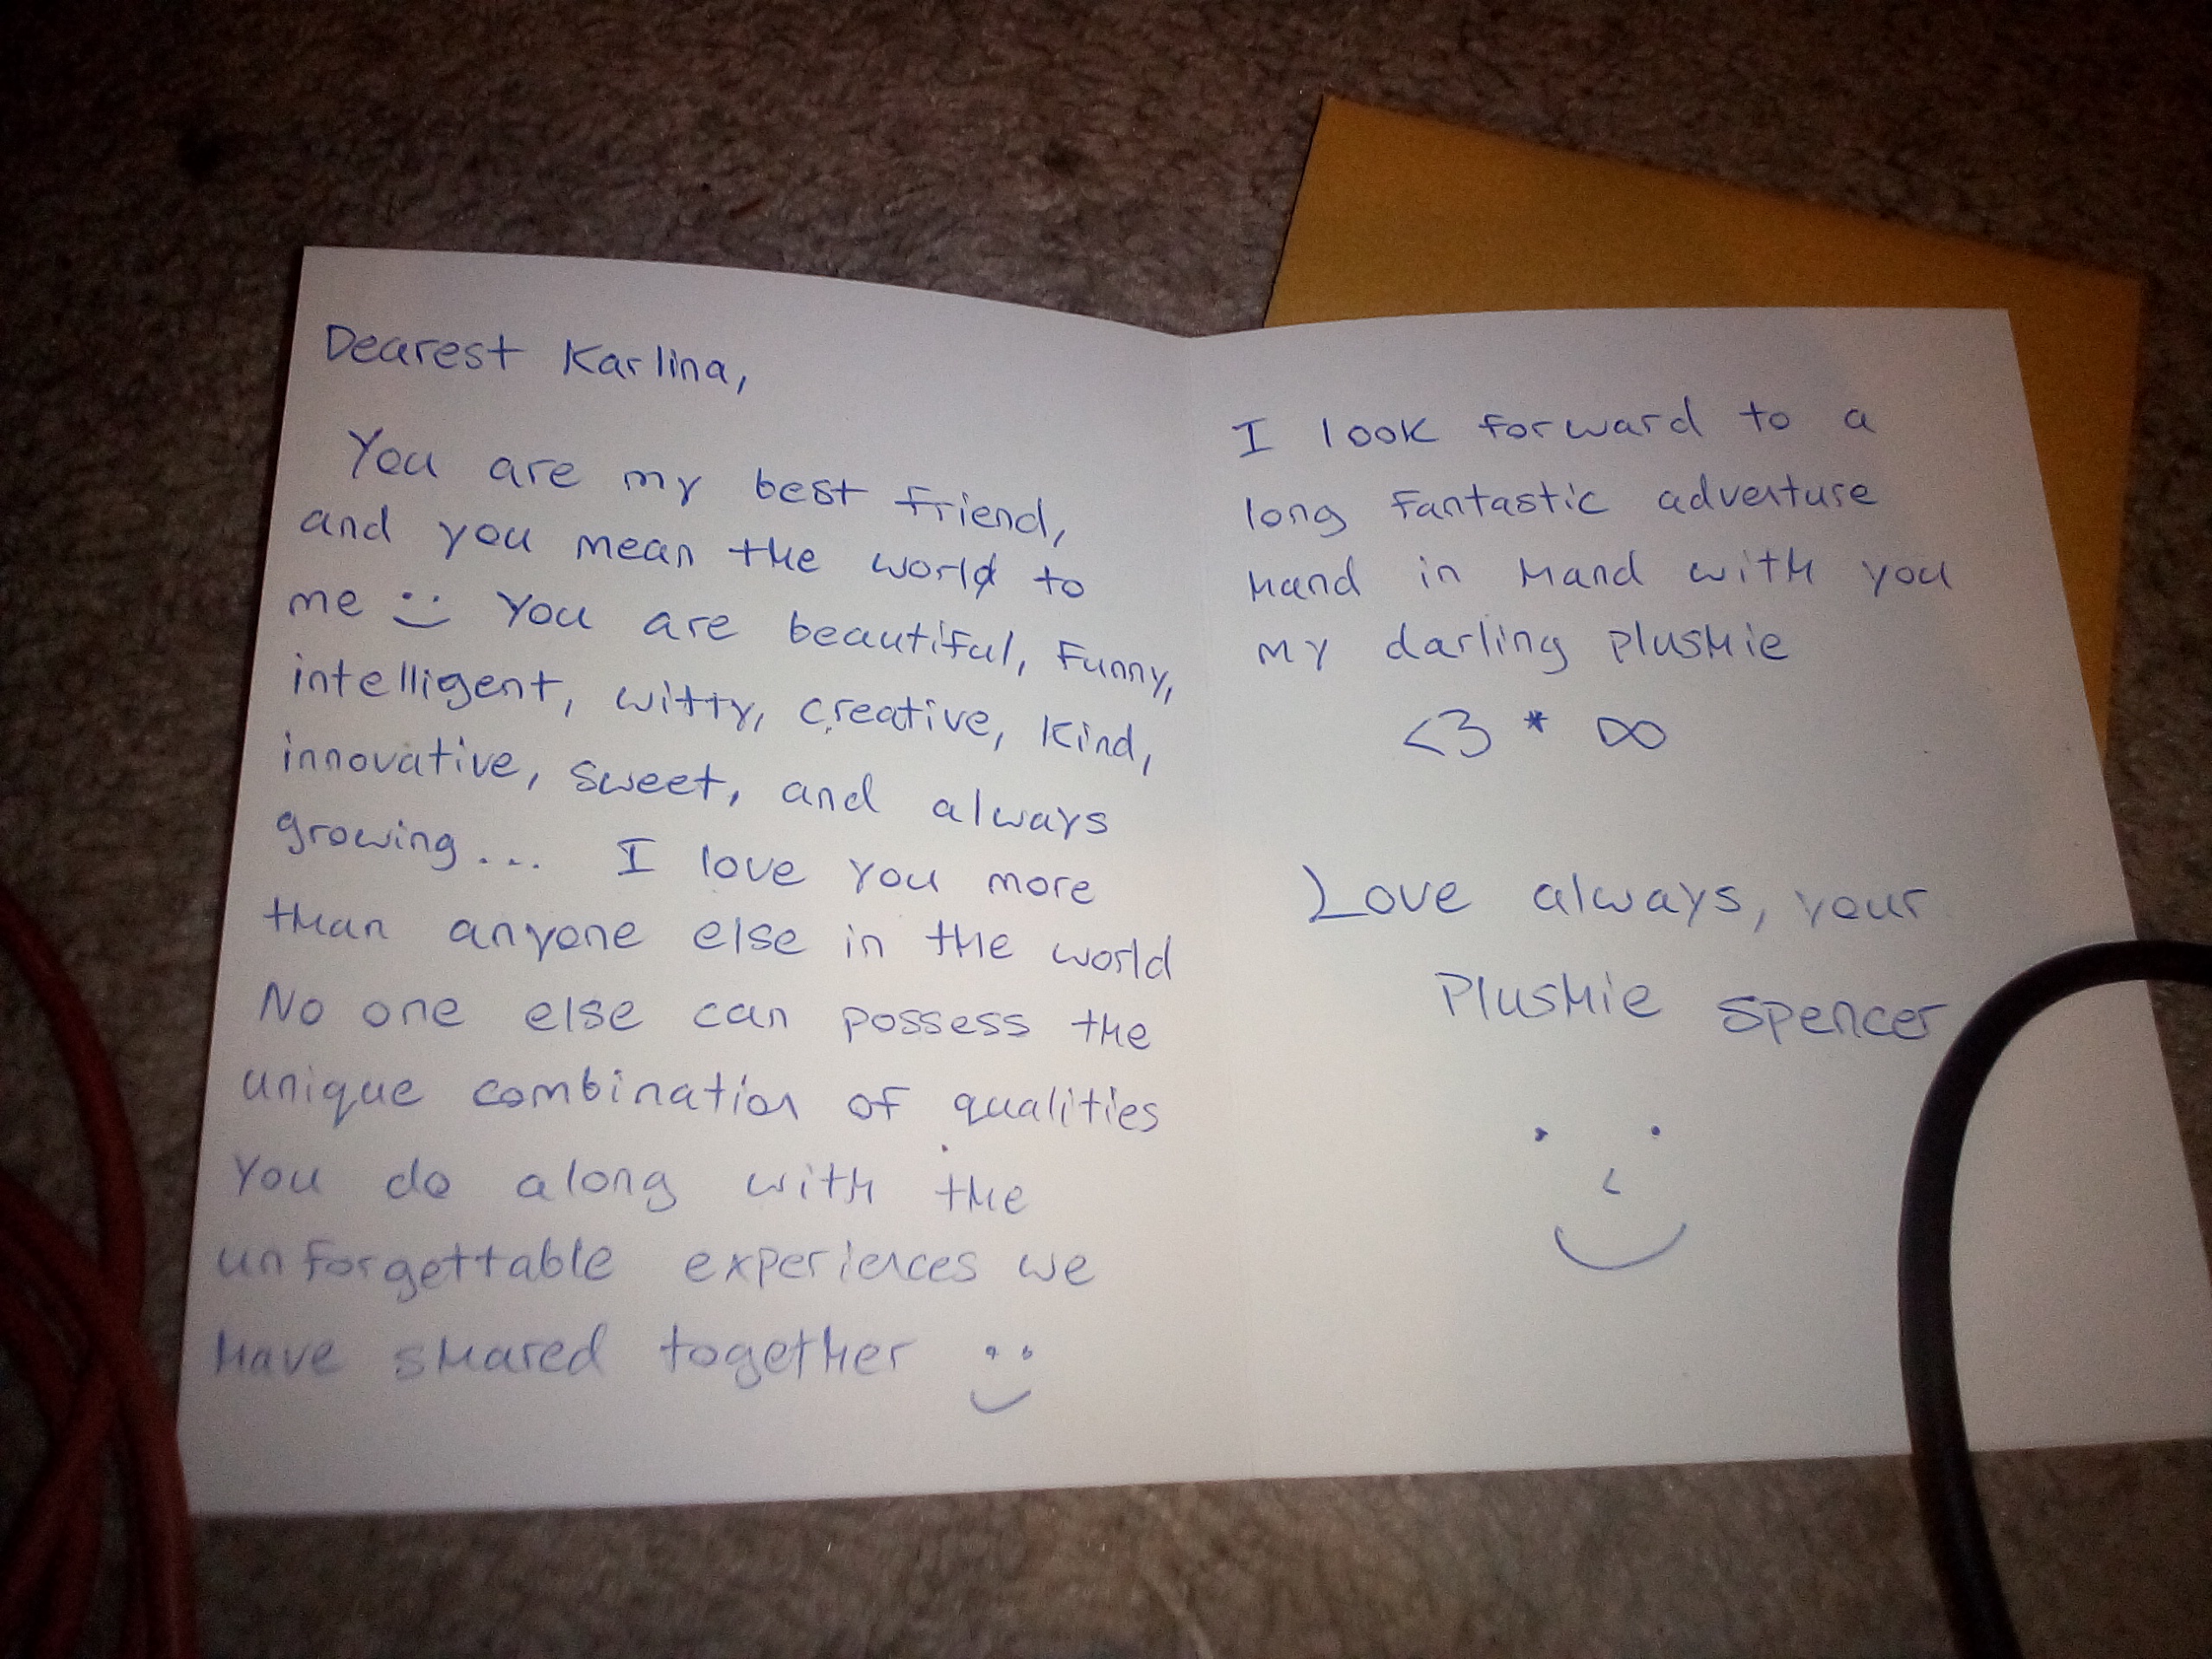 Dearest Karlina,
You are my best friend,
and you mean the world to
me :) You are beautiful, funny,
intelligent, witty, creative, kind,
innovative, sweet, and always
growing... I love you more
than anyone else in the world
No one else can possess the
unique combination of qualities
You do along with the
unforgettable experiences we
have shared together :)
I look forward to a
long fantastic adventure
hand in hand with you
my darling plushie
<3 * ∞
Love always, your
Plushie Spencer